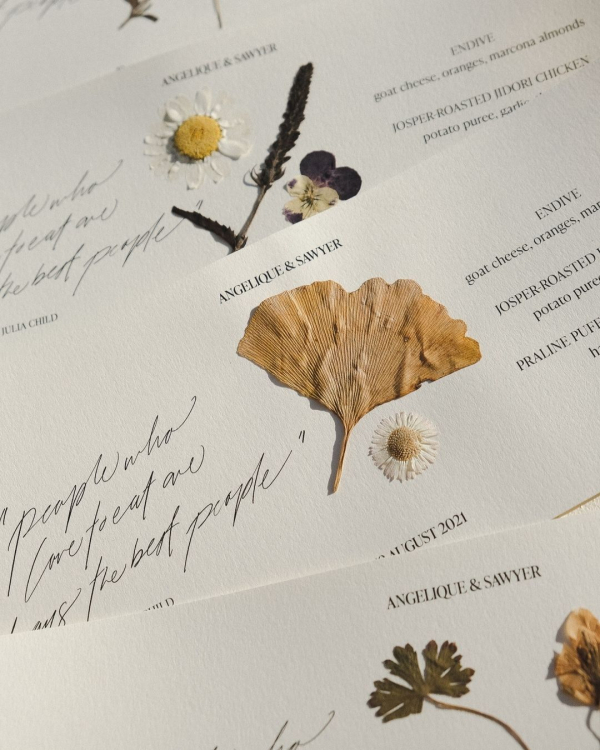 people who
ANGELIQUE & SAWYER
ENDIVE
goat cheese, oranges, marcona almonds
JOSPER-ROASTED JIDORI CHICKEN
potato puree, garlic
people who
to eat are
the best people"
JULIA CHILD
ANGELIQUE & SAWYER
ENDIVE
goat cheese, oranges,
JOSPER-ROASTED
potato
PRALINE
"people who
love to eat are
the best people"
AUGUST 2021
ANGELIQUE & SAWYER